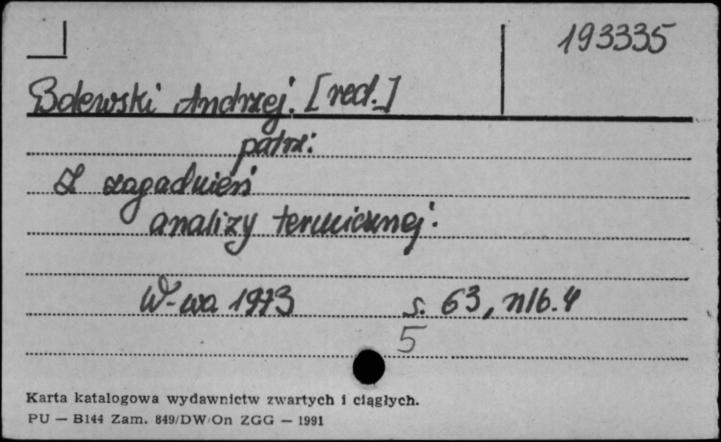 193335
Bolewski Andrzej. [red.]
patrz:
Z zagadnień
analizy termicznej.
W-wa 1973 s. 63, nlb. 4
5
Karta katalogowa wydawnictw zwartych i ciągłych.
PU — B144 Zam. 849/DW/On ZGG — 1991